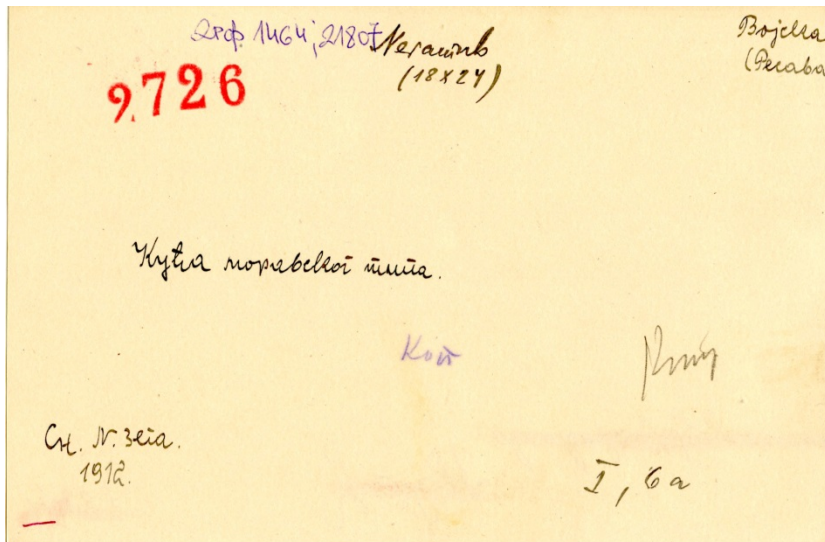 2рф. 1464; 21807 Негатив
(18x24)
Војска
(Ресава
2726
Кућа моравског типа.
Кот
Сн. N. Зега.
1912.
I, 6a